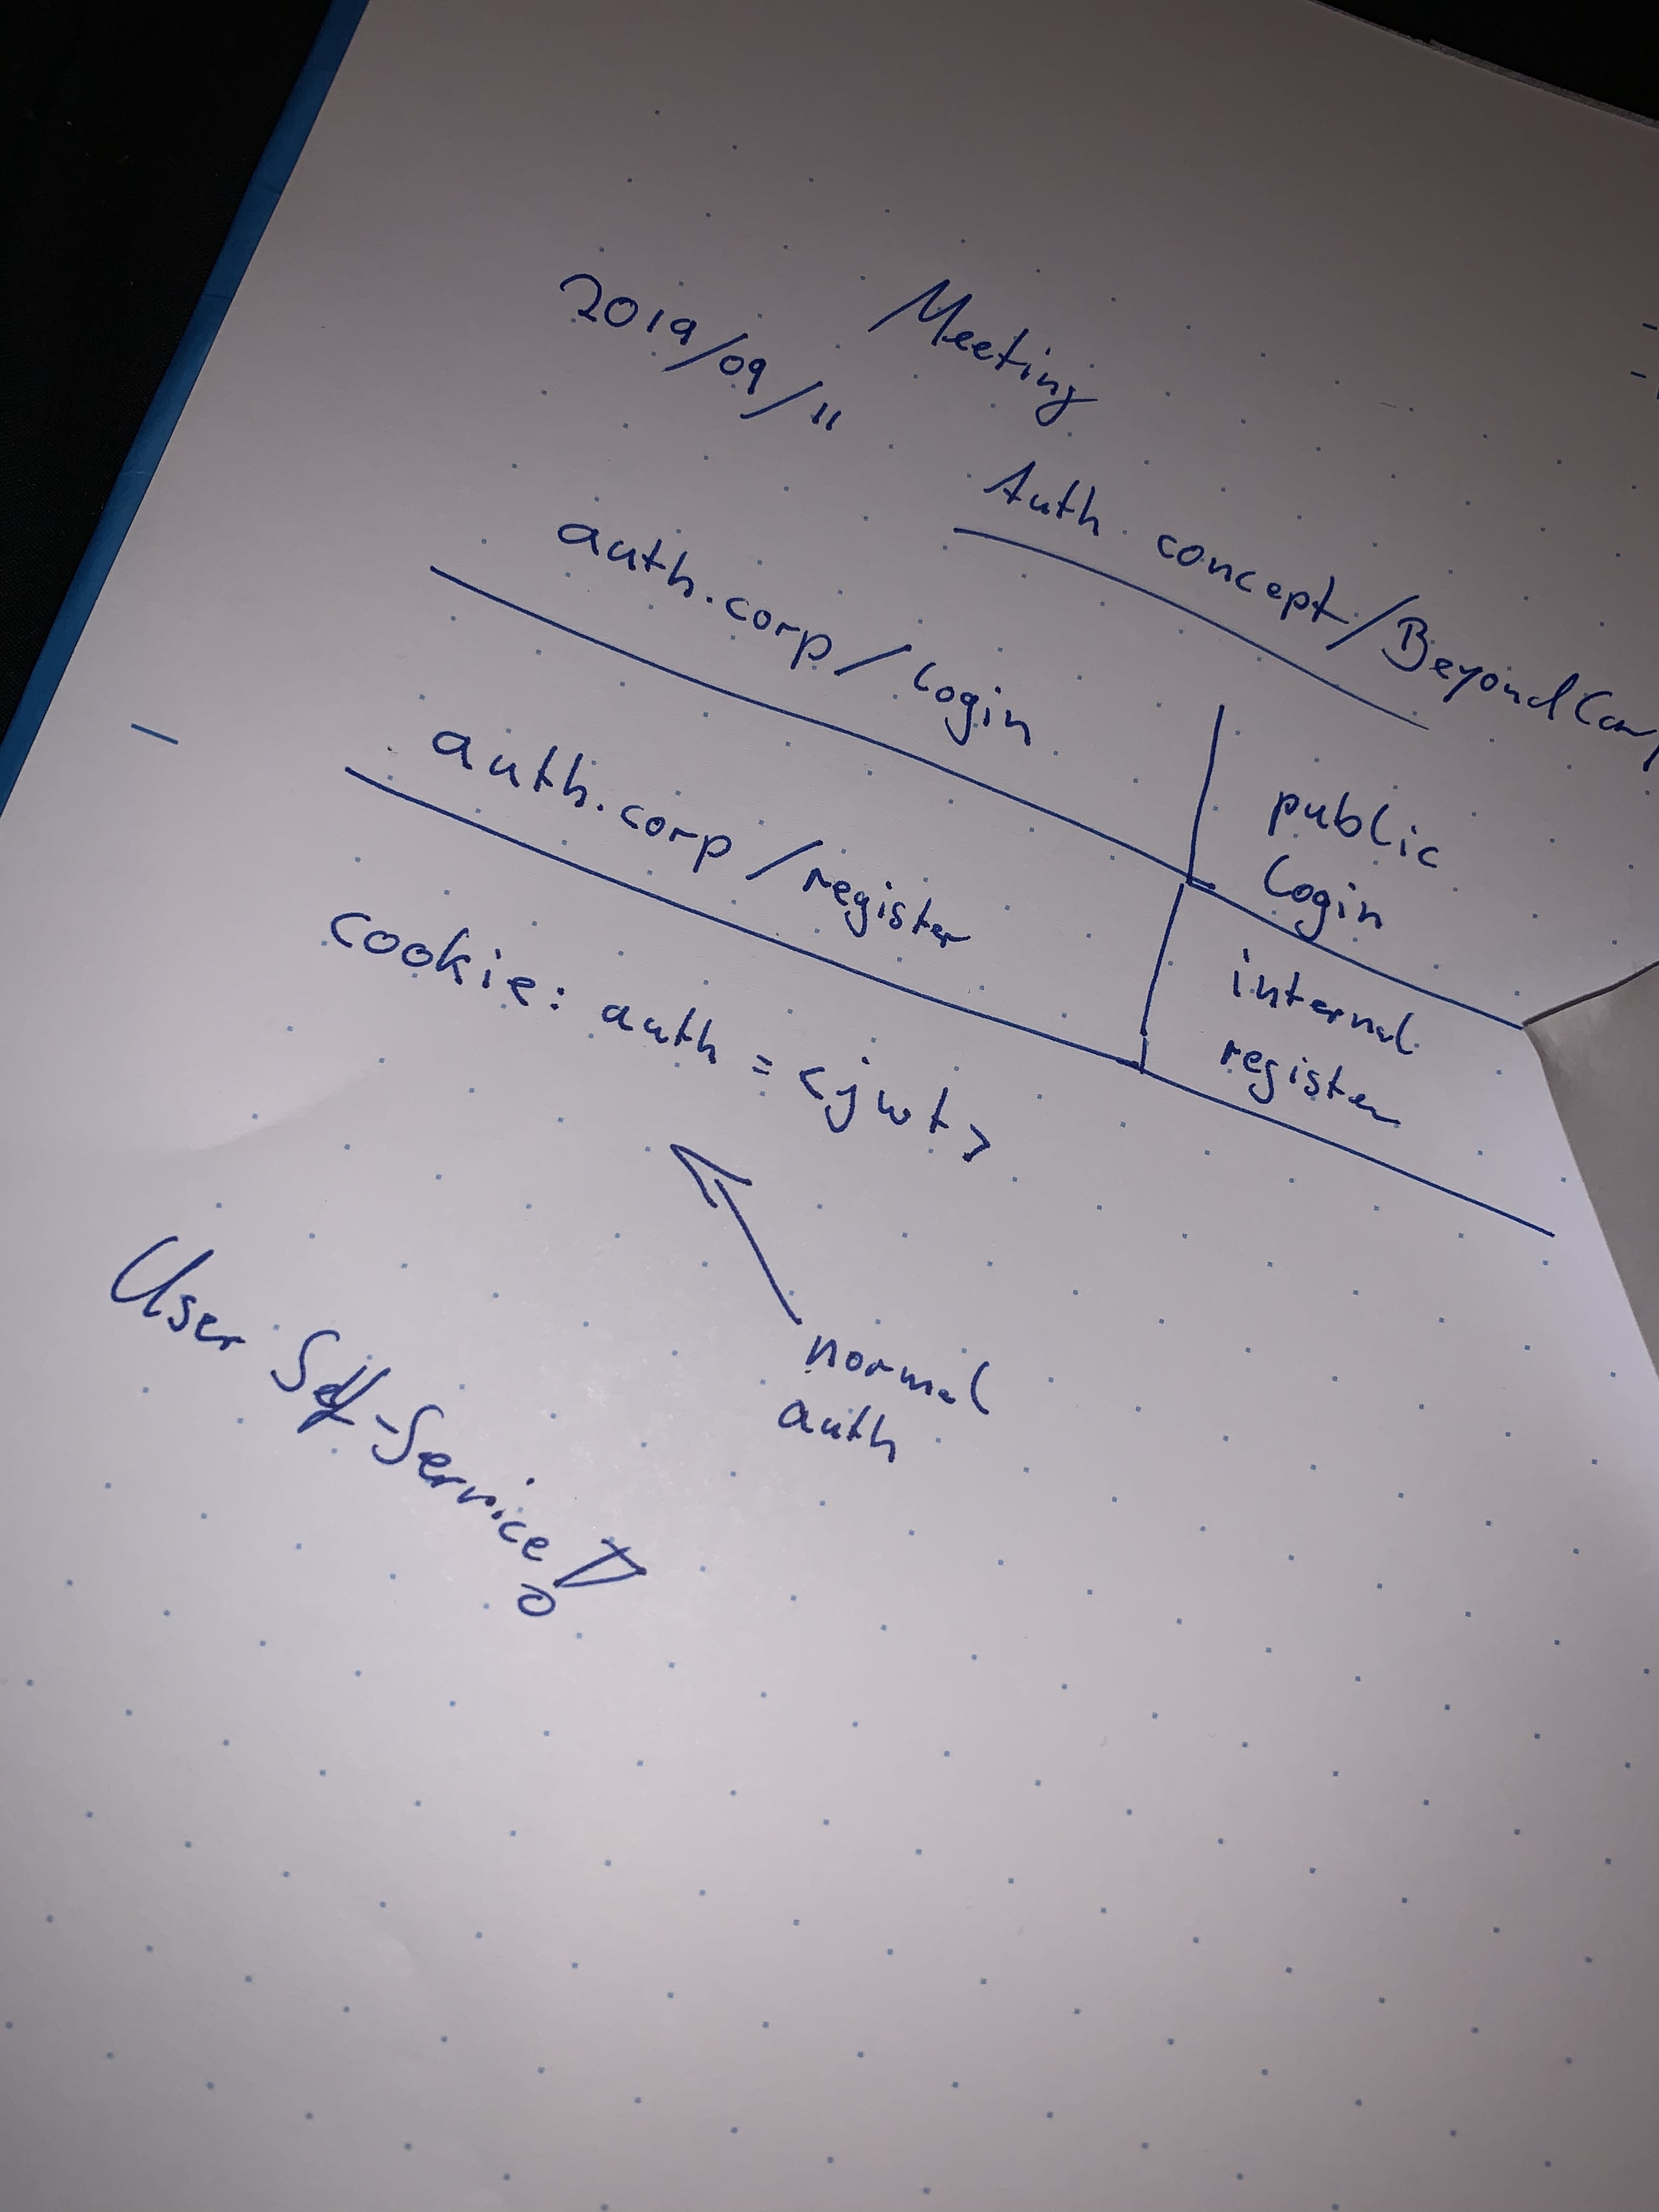 2019/09/11 Meeting
Auth. concept/BeyondCorp
auth.corp/login
public
login
auth.corp/register
internal
register
cookie: auth = <jwt>
normal
auth
User Self-Service!